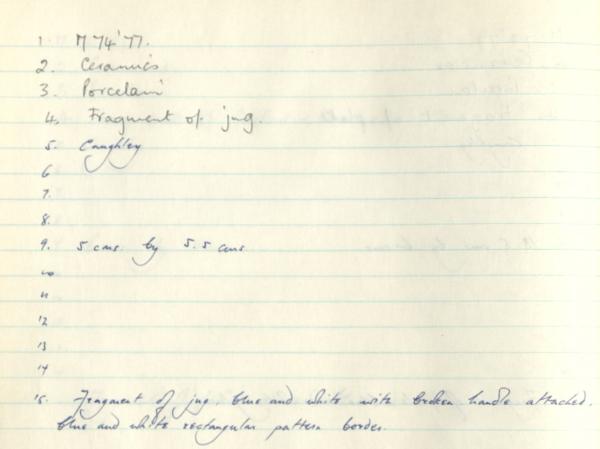 1. M 74'77.
2. Ceramics
3. Porcelain
4. Fragment of jug.
5. Caughley
6
7.
8.
9. 5 cms by 5.5 cms
10
11
12
13
14
15. Fragment of jug. blue and white with broken handle attached.
blue and white rectangular pattern border.